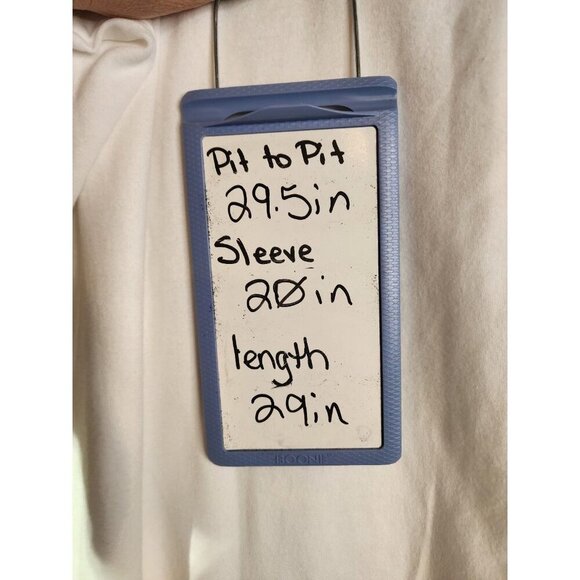 Pit to Pit
29.5in
Sleeve
20in
length
29in